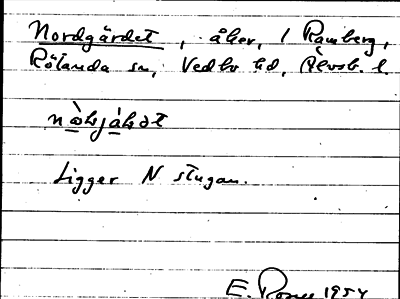 Nordgärdet, åker, 1 Ramberg,
Rölanda sn, Vedbo hd, Älvsb. l.
Ligger N stugan.
E. 1954